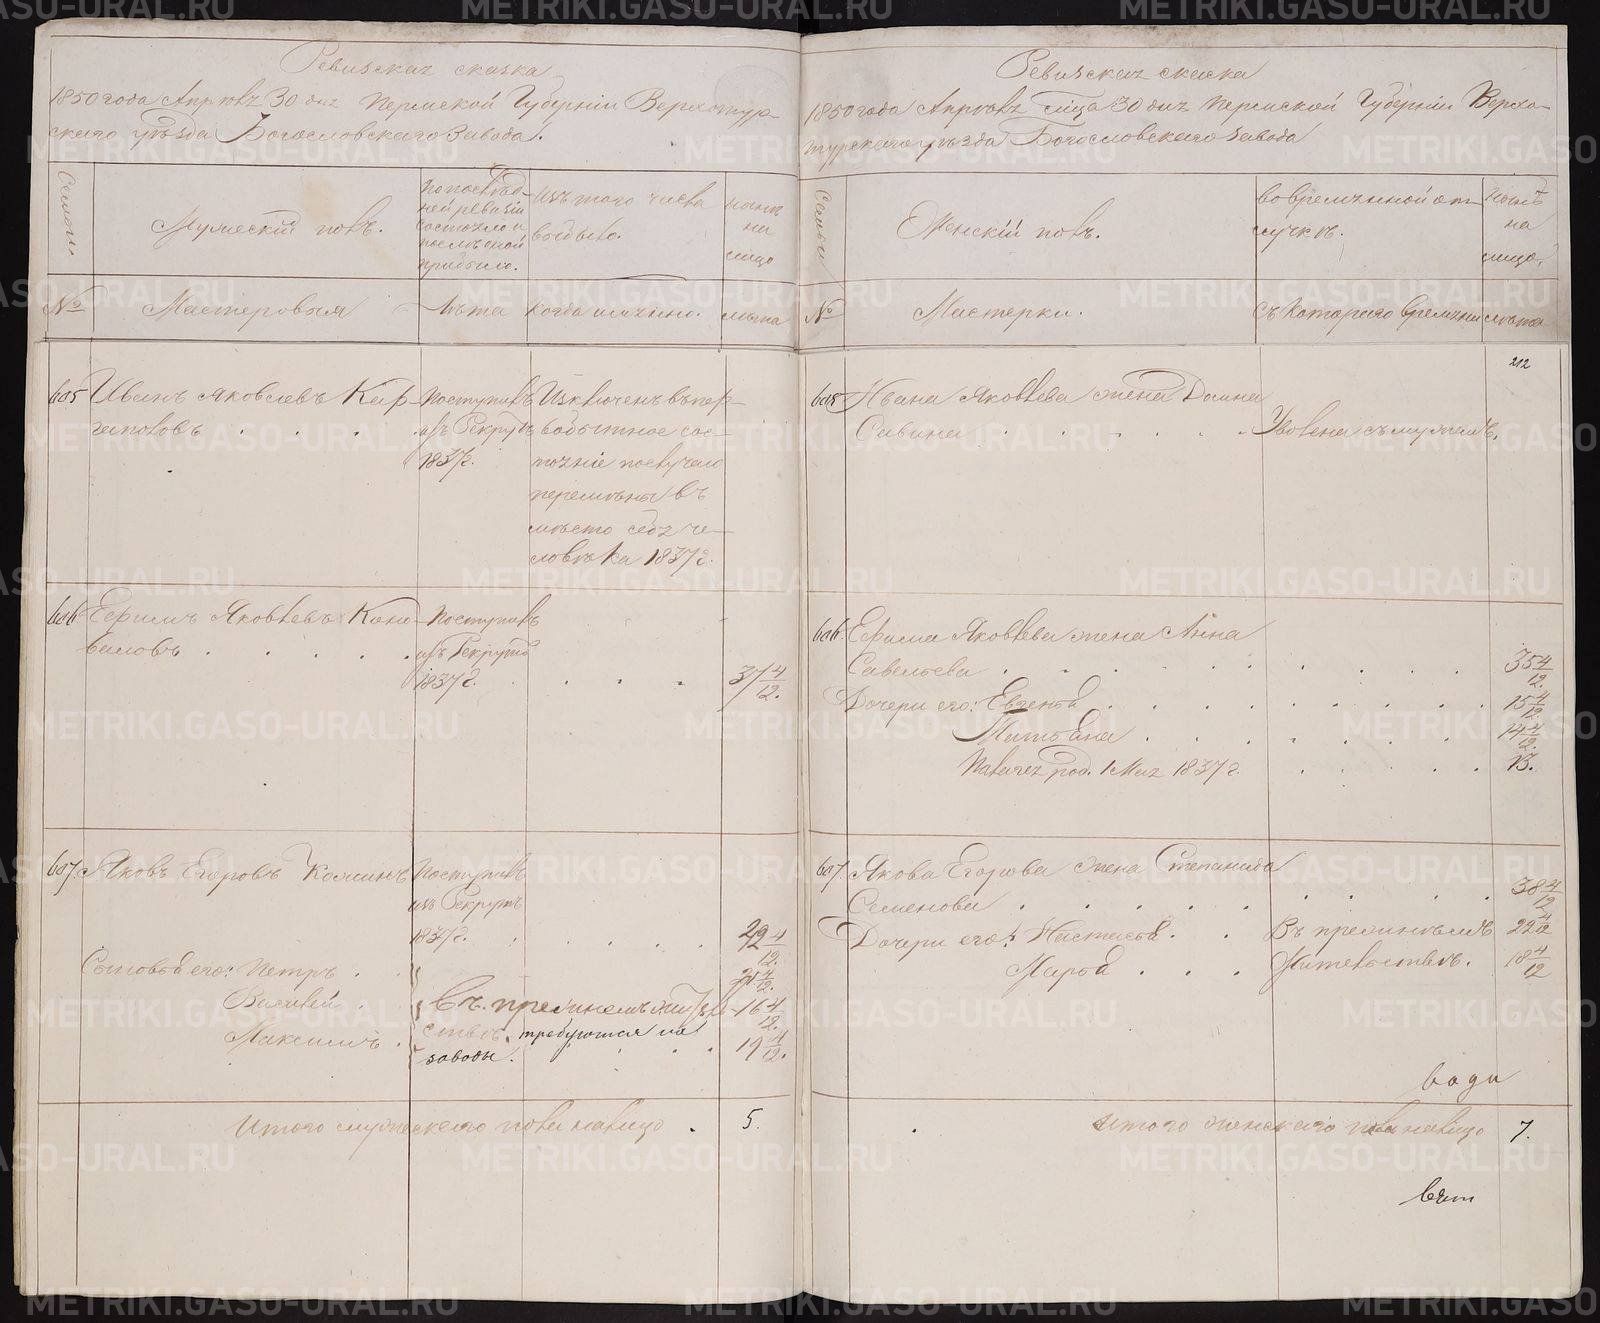 Ревизская сказка
1850 года Апреля 30 дня Пермской Губерніи Верхотур-
скаго уѣзда Богословскаго Завода.
Семьи
Мужескій полъ.
По послѣд-
ней ревизіи
состояло и
послѣ оной
прибыло.
Изъ того числа
выбыло.
Нынѣ
на
лицо
№
Мастеровыя
Лѣта
Когда имянно.
лѣта
605 Иванъ Яковлевъ Кар-
Поступилъ
изъ Рекрутъ
1837 г.
Изключенъ въ пер-
вобытное сос-
тояніе по случаю
перемѣны въ
мѣсто себя че-
ловѣка 1837 г.
606 Ефимъ Яковлевъ Коно-
валовъ
Поступилъ
изъ Рекрутъ
1837 г.
37 4/12.
607. Яковъ Егоровъ
Поступилъ
изъ Рекрутъ
1837 г.
4/12.
Сыновья его: Петръ
4/12.
Василей
16 4/12.
Максимъ
19 4/12.
Въ
требуются на
заводы.
Итого мужескаго пола налицо 5.
Ревизская сказка
1850 года Апреля мѣсяца 30 дня Пермской Губерніи Верхо-
турскаго уѣзда Богословскаго Завода
Семьи
Женскій полъ.
во временной от-
лучкѣ.
Нынѣ
на
лицо.
№
Мастерки.
Съ котораго времени
лѣта
212
605 Ивана Яковлева жена Домна
Савина
Уволена съ мужемъ.
606. Ефима Яковлева жена Анна
Савельева 35 4/12
Дочери его: Евгенья 15 4/12
Татьяна 14 4/12.
род. 1 Мая 1837 г. 13.
607 Якова Егорова жена Степанида
Семенова 38 4/12
Дочери его: Настасья 22 4/12
Марья 18 4/12
Итого женскаго пола налицо 7.
METRIKI.GASO-URAL.RU